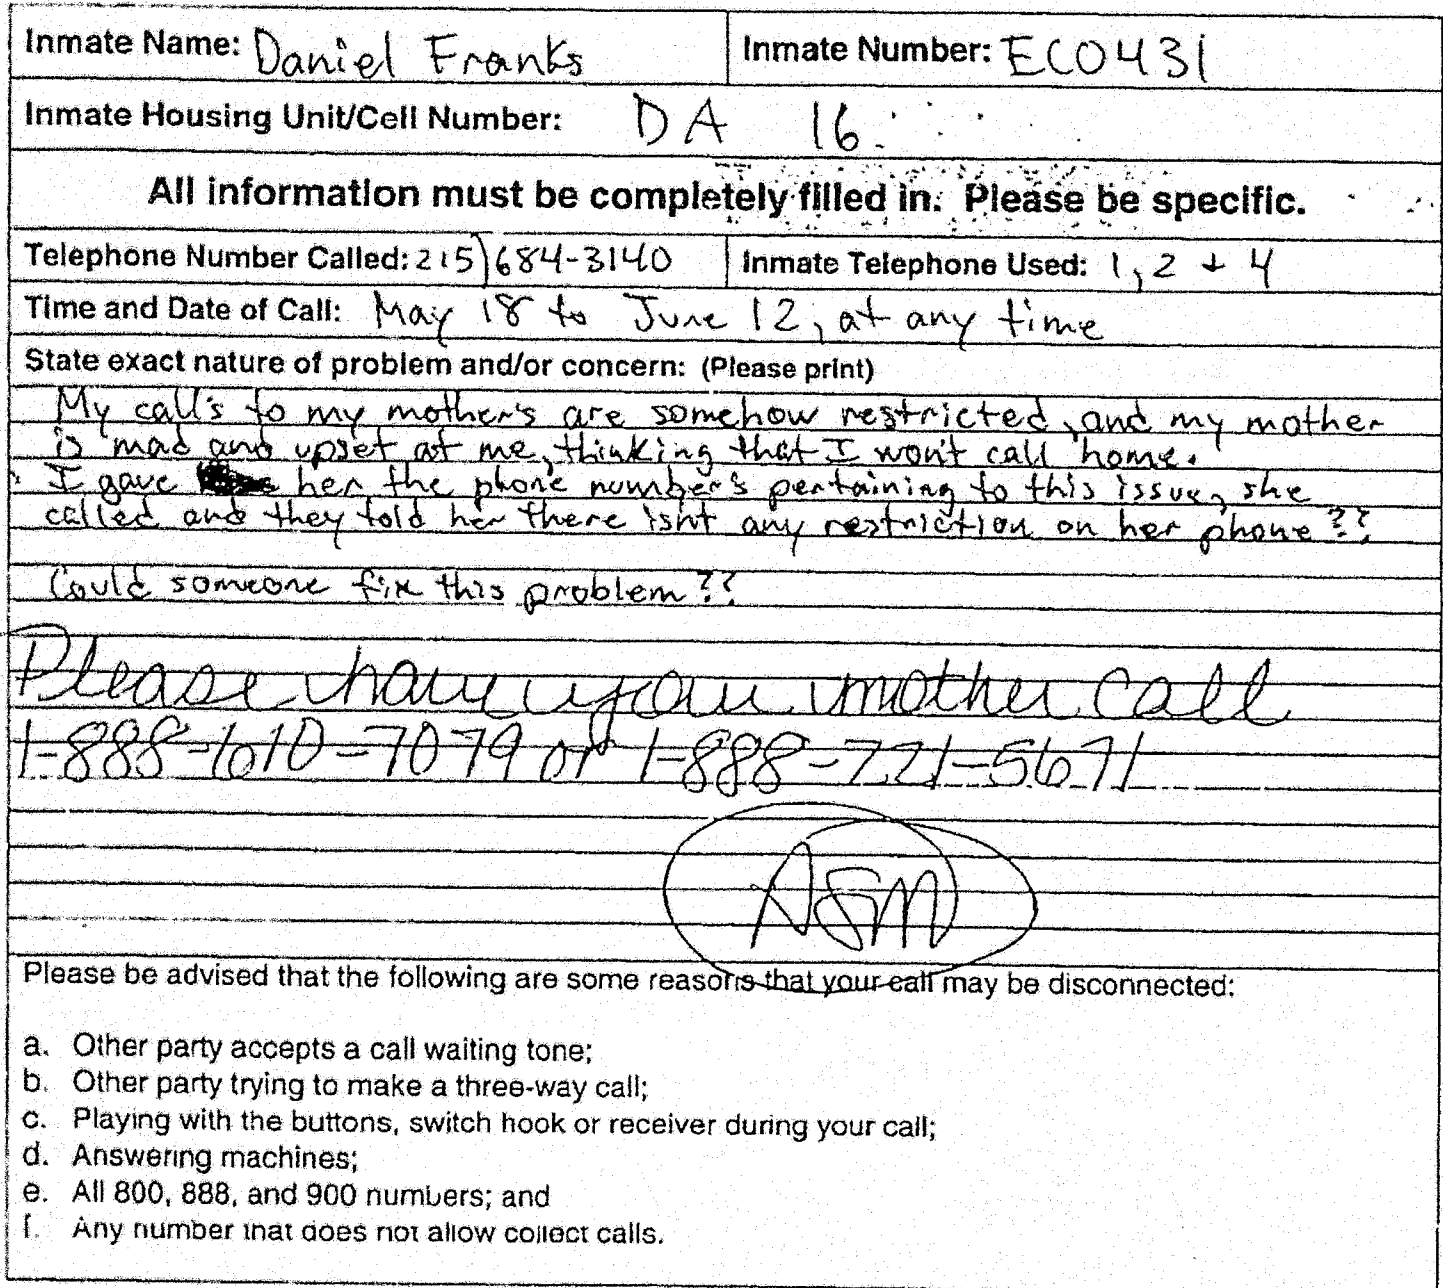 Inmate Name: Daniel Franks
Inmate Number: EC0431
Inmate Housing Unit/Cell Number: DA 16.
All information must be completely filled in. Please be specific.
Telephone Number Called: 215)684-3140
Inmate Telephone Used: 1, 2 + 4
Time and Date of Call: May 18 to June 12, at any time
State exact nature of problem and/or concern: (Please print)
My call's to my mother's are somehow restricted, and my mother
is mad and upset at me, thinking that I won't call home.
I gave her the phone number's pertaining to this issue, she
called and they told her there isn't any restriction on her phone??
Could someone fix this problem??
Please have your mother call
1-888-610-7079 or 1-888-721-5671
ASM
Please be advised that the following are some reasons that your call may be disconnected:
a. Other party accepts a call waiting tone;
b. Other party trying to make a three-way call;
c. Playing with the buttons, switch hook or receiver during your call;
d. Answering machines;
e. All 800, 888, and 900 numbers; and
f. Any number that does not allow collect calls.